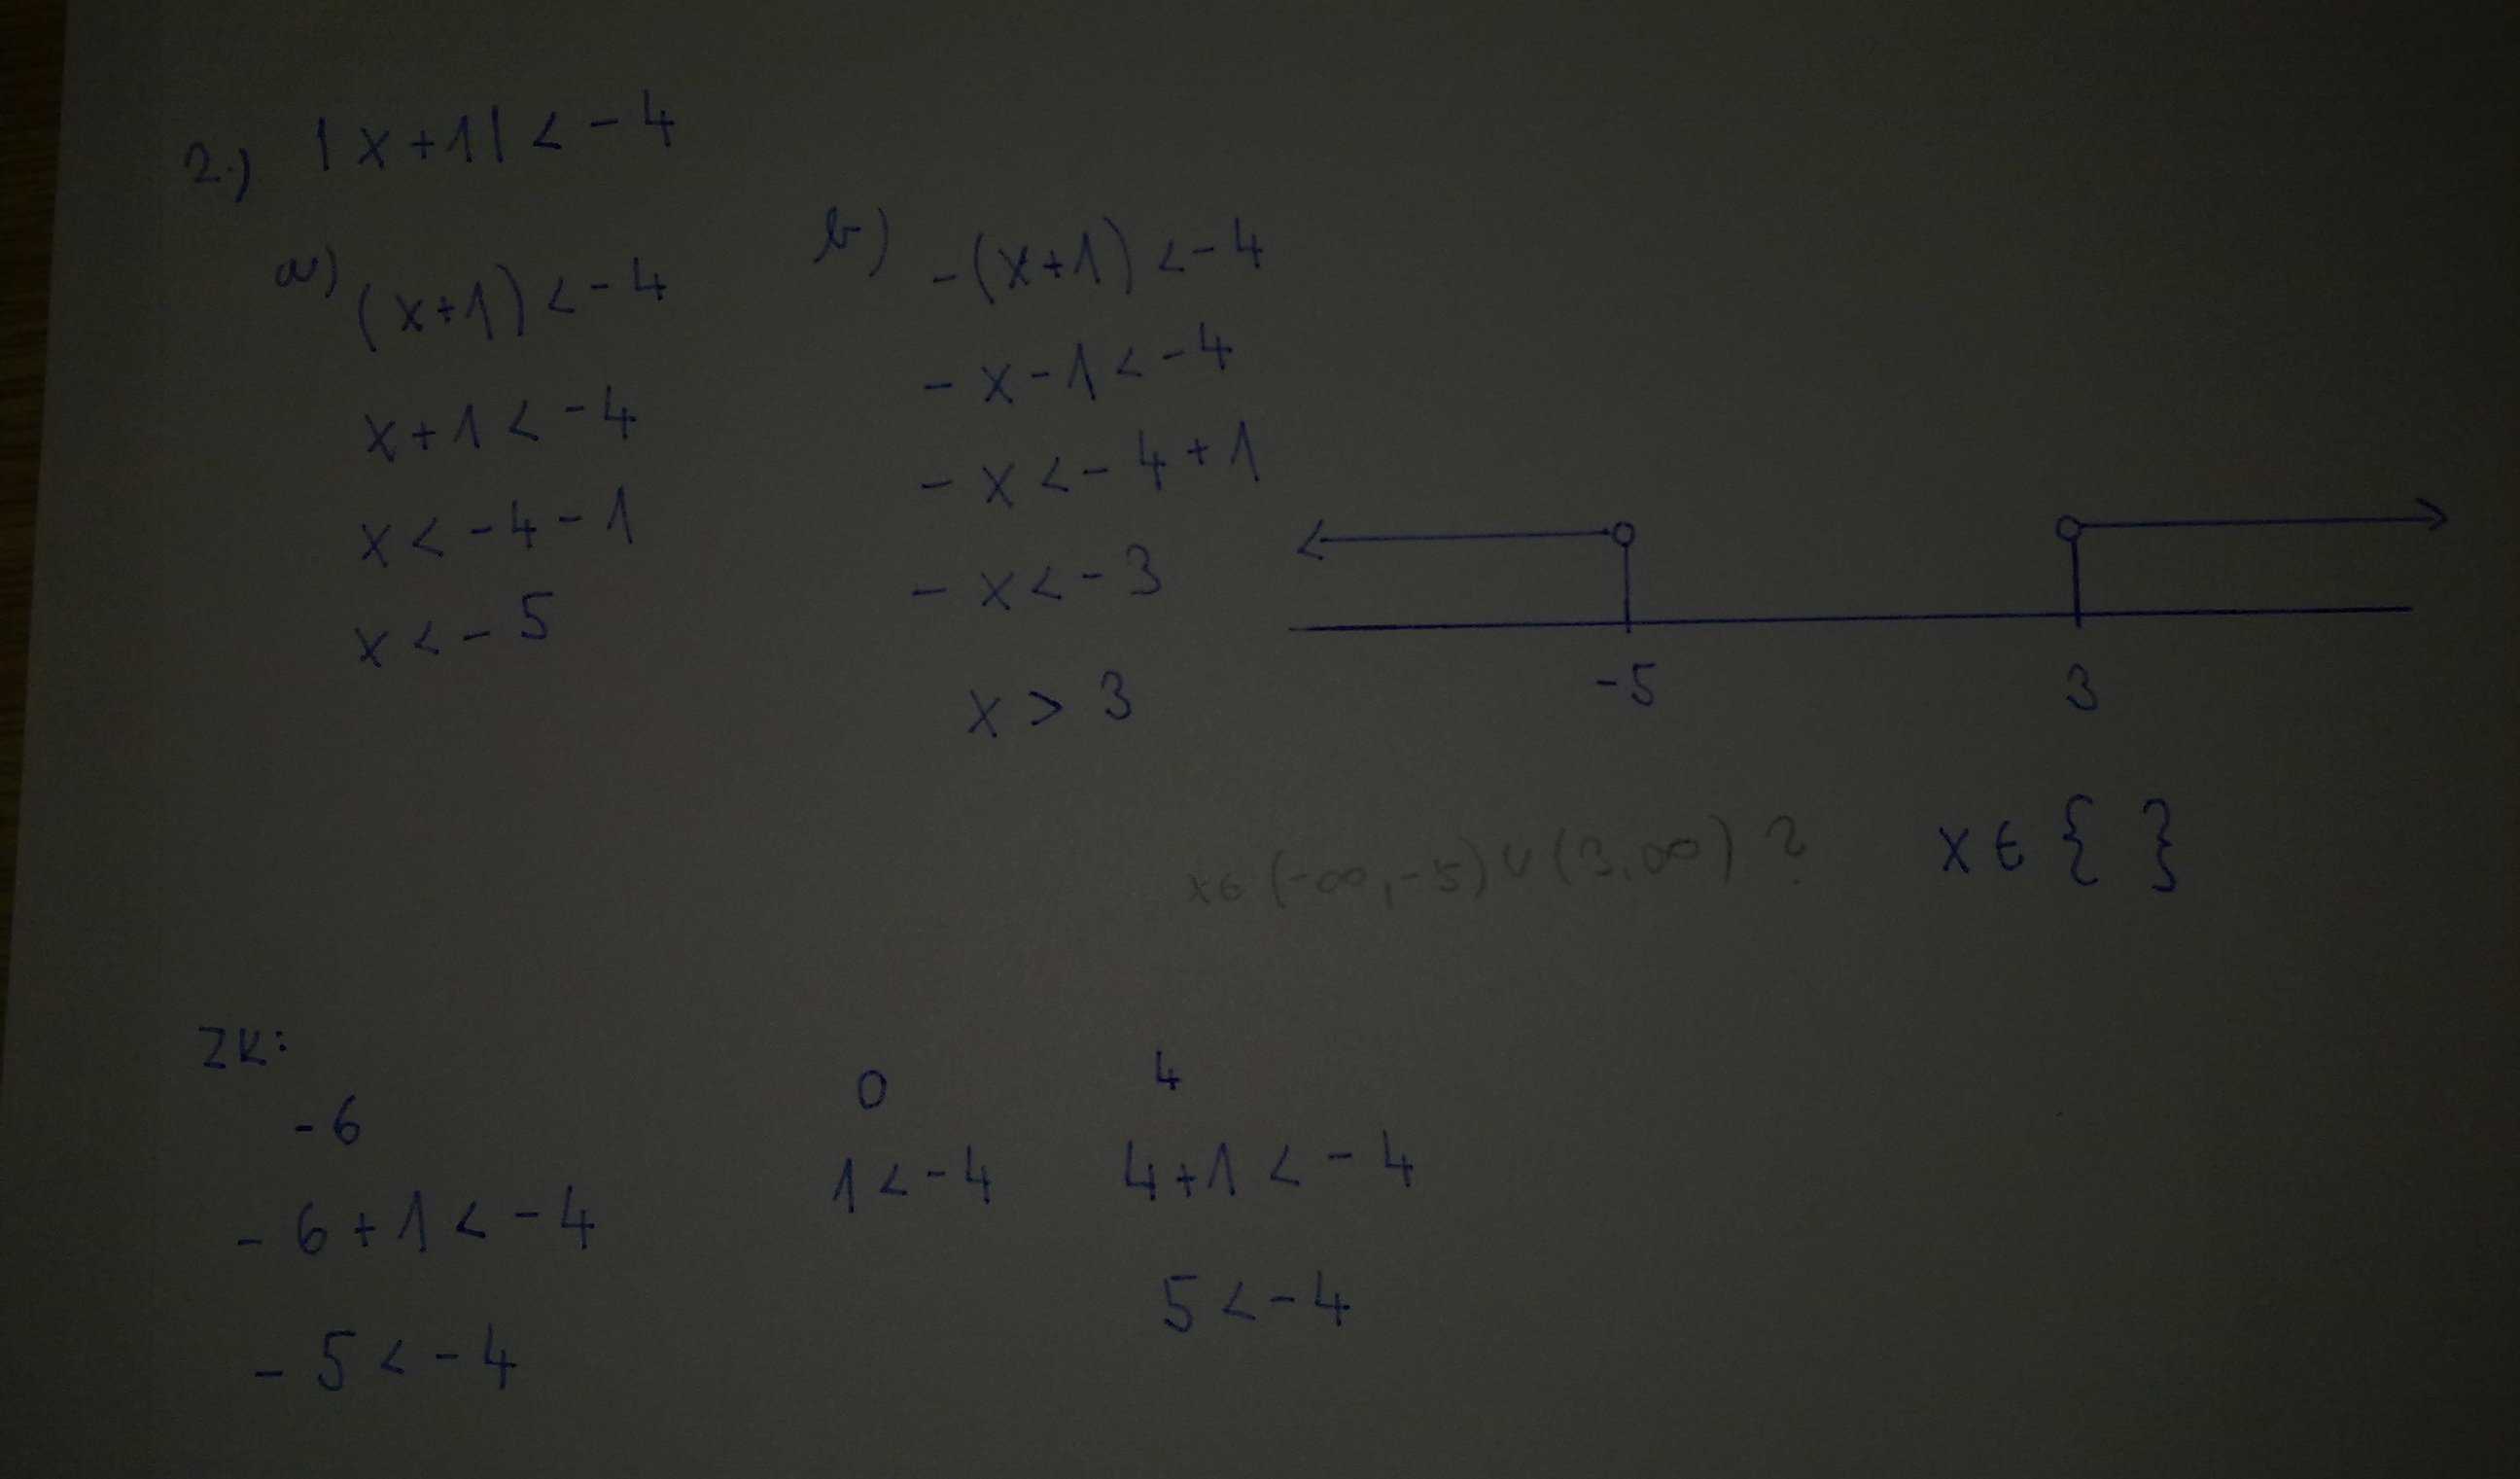 2.) |x+1| < -4
a) (x+1) < -4
x+1 < -4
x < -4 - 1
x < -5
b) -(x+1) < -4
-x-1 < -4
-x < -4+1
-x < -3
x > 3
-5 3
x∈(-∞,-5)∪(3,∞) ?
x∈{ }
ZK:
-6
-6+1 < -4
-5 < -4
0
1 < -4
4
4+1 < -4
5 < -4